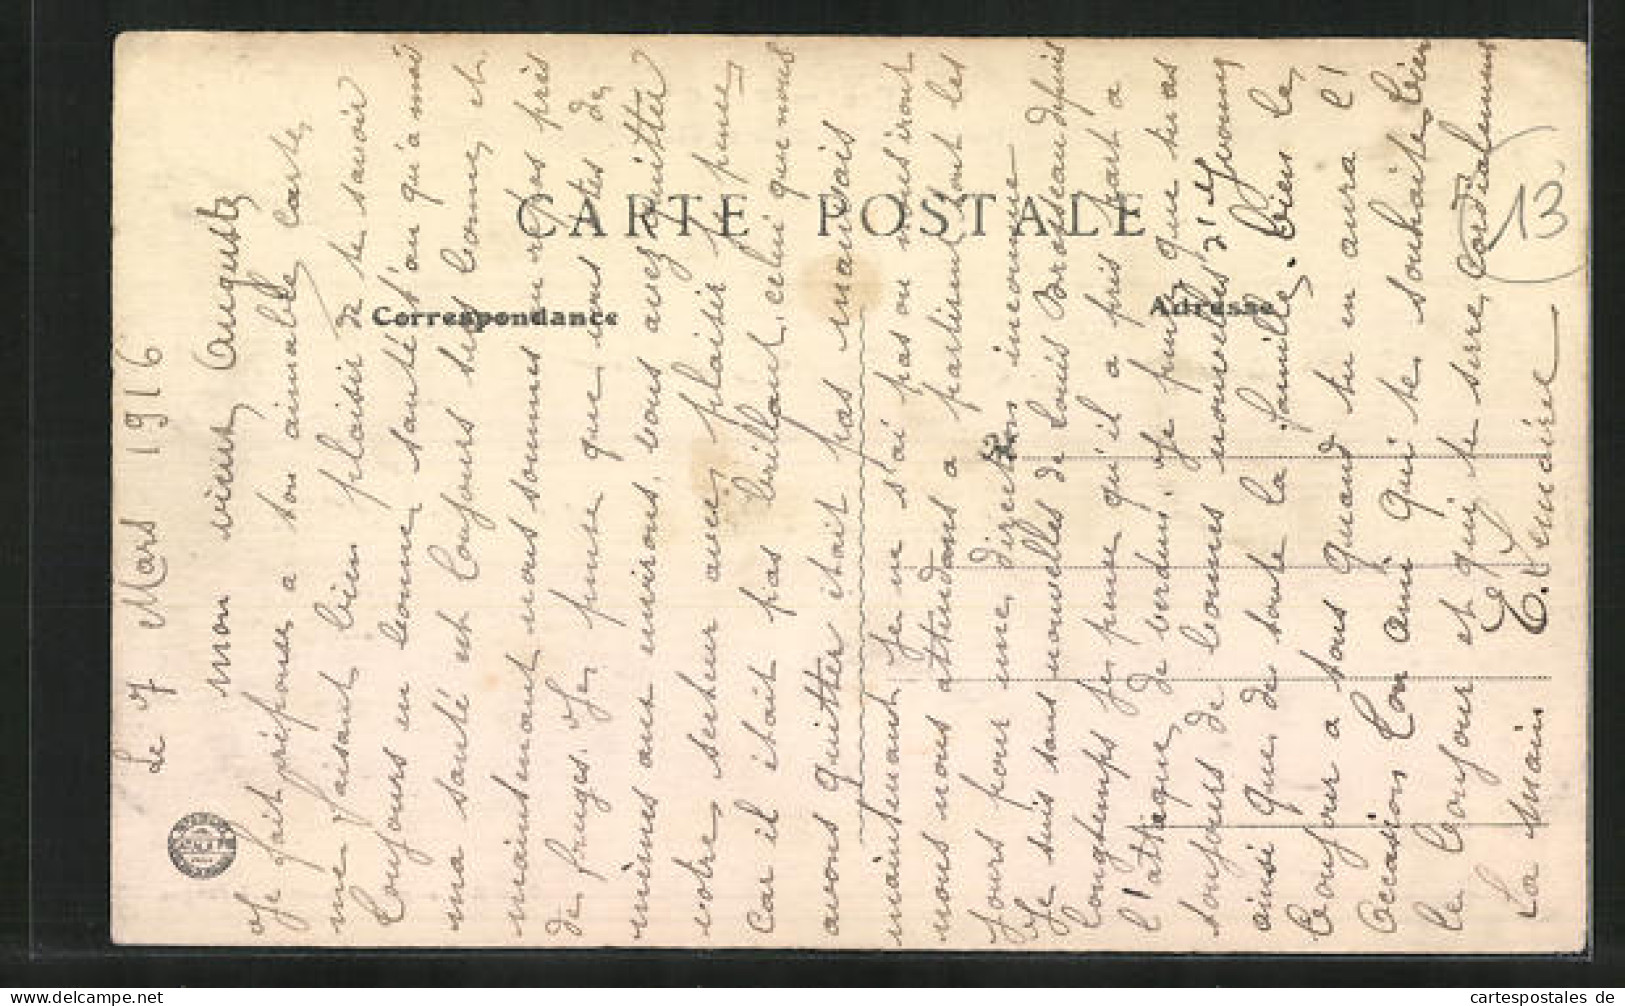 Le 7 Mars 1916
mon vieux Auguste
Je fait réponse a ton aimable carte
me faisant bien plaisir de te savoir
toujours en bonne santé t'au qu'a moi
ma santé est toujours très bonne, et
maintenant nous sommes au repos près
de fruges. Je pense que vous êtes de
mêmes aux environs, vous avez quitter
votre secteur avec plaisir je pense
car il était pas brillant, celui que nous
avons quitter était pas mauvais
maintenant je ne s'ai pas ou nous iront
nous nous attendans a partiemt tout les
jours pour une direction inconnue
Je suis sans nouvelles de Louis Brosseau depuis
longtemps je pense qu'il a pris part a
l'attaque de verdun. Je pense que tu as
toujours de bonnes nouvelles d'
ainsi que de toute la famille. bien le
bonjour a tous quand tu en aura l'
occasion Ton ami qui te souhaite bien
le bonjour et qui te serre cordialement
La main E. Lemaire
CARTE POSTALE
Correspondance
Adresse
13
cartespostales de